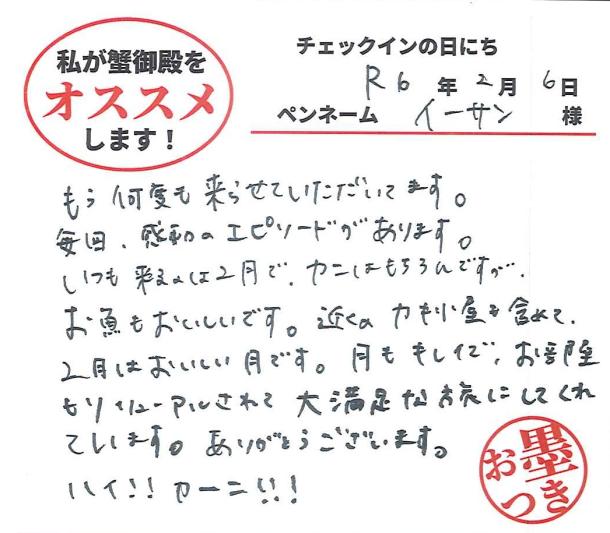 私が蟹御殿を
オススメ
します！
チェックインの日にち
R6年2月6日
ペンネーム イーサン 様
もう何度も来らせていただいてます。
毎回、感動のエピソードがあります。
いつも来るのは2月で、カニはもちろんですが、
お魚もおいしいです。近くのカキ小屋も含めて、
2月はおいしい月です。月もキレイで、お部屋
もリニューアルされて大満足な旅にしてくれ
ています。ありがとうございます。
ハイ！！カーニ！！！
お墨
つき